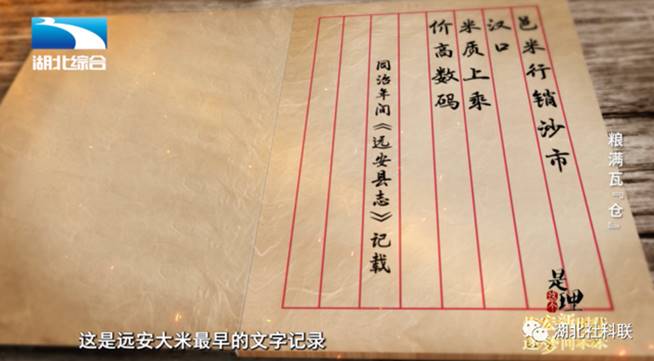 湖北综合
邑米行销沙市
汉口
米质上乘
价高数码
同治年间《远安县志》记载
粮满瓦『仓』
是这个理
湖北社科联
这是远安大米最早的文字记录